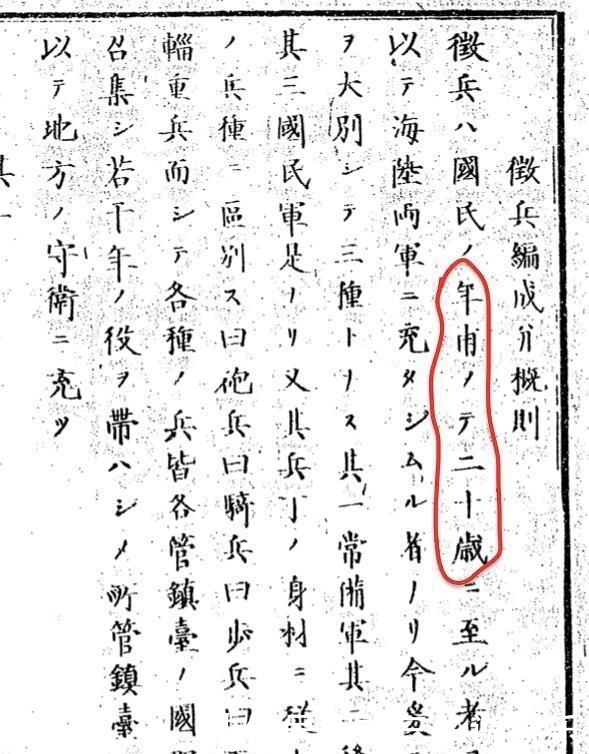 徴兵編成并概則
徴兵ハ國民ノ年甫メテ二十歳ニ至ル者
以テ海陸両軍ニ充タシムル者ナリ今
ヲ大別シテ三種トナス其一常備軍其二後
其三國民軍是ナリ又其兵丁ノ身材ニ従
ノ兵種ニ區別ス曰砲兵曰騎兵曰歩兵曰
輜重兵而シテ各種ノ兵皆各管鎮臺ノ國
召集シ若干年ノ役ヲ帶ハシメ所管鎮臺
以テ地方ノ守衛ニ充ツ